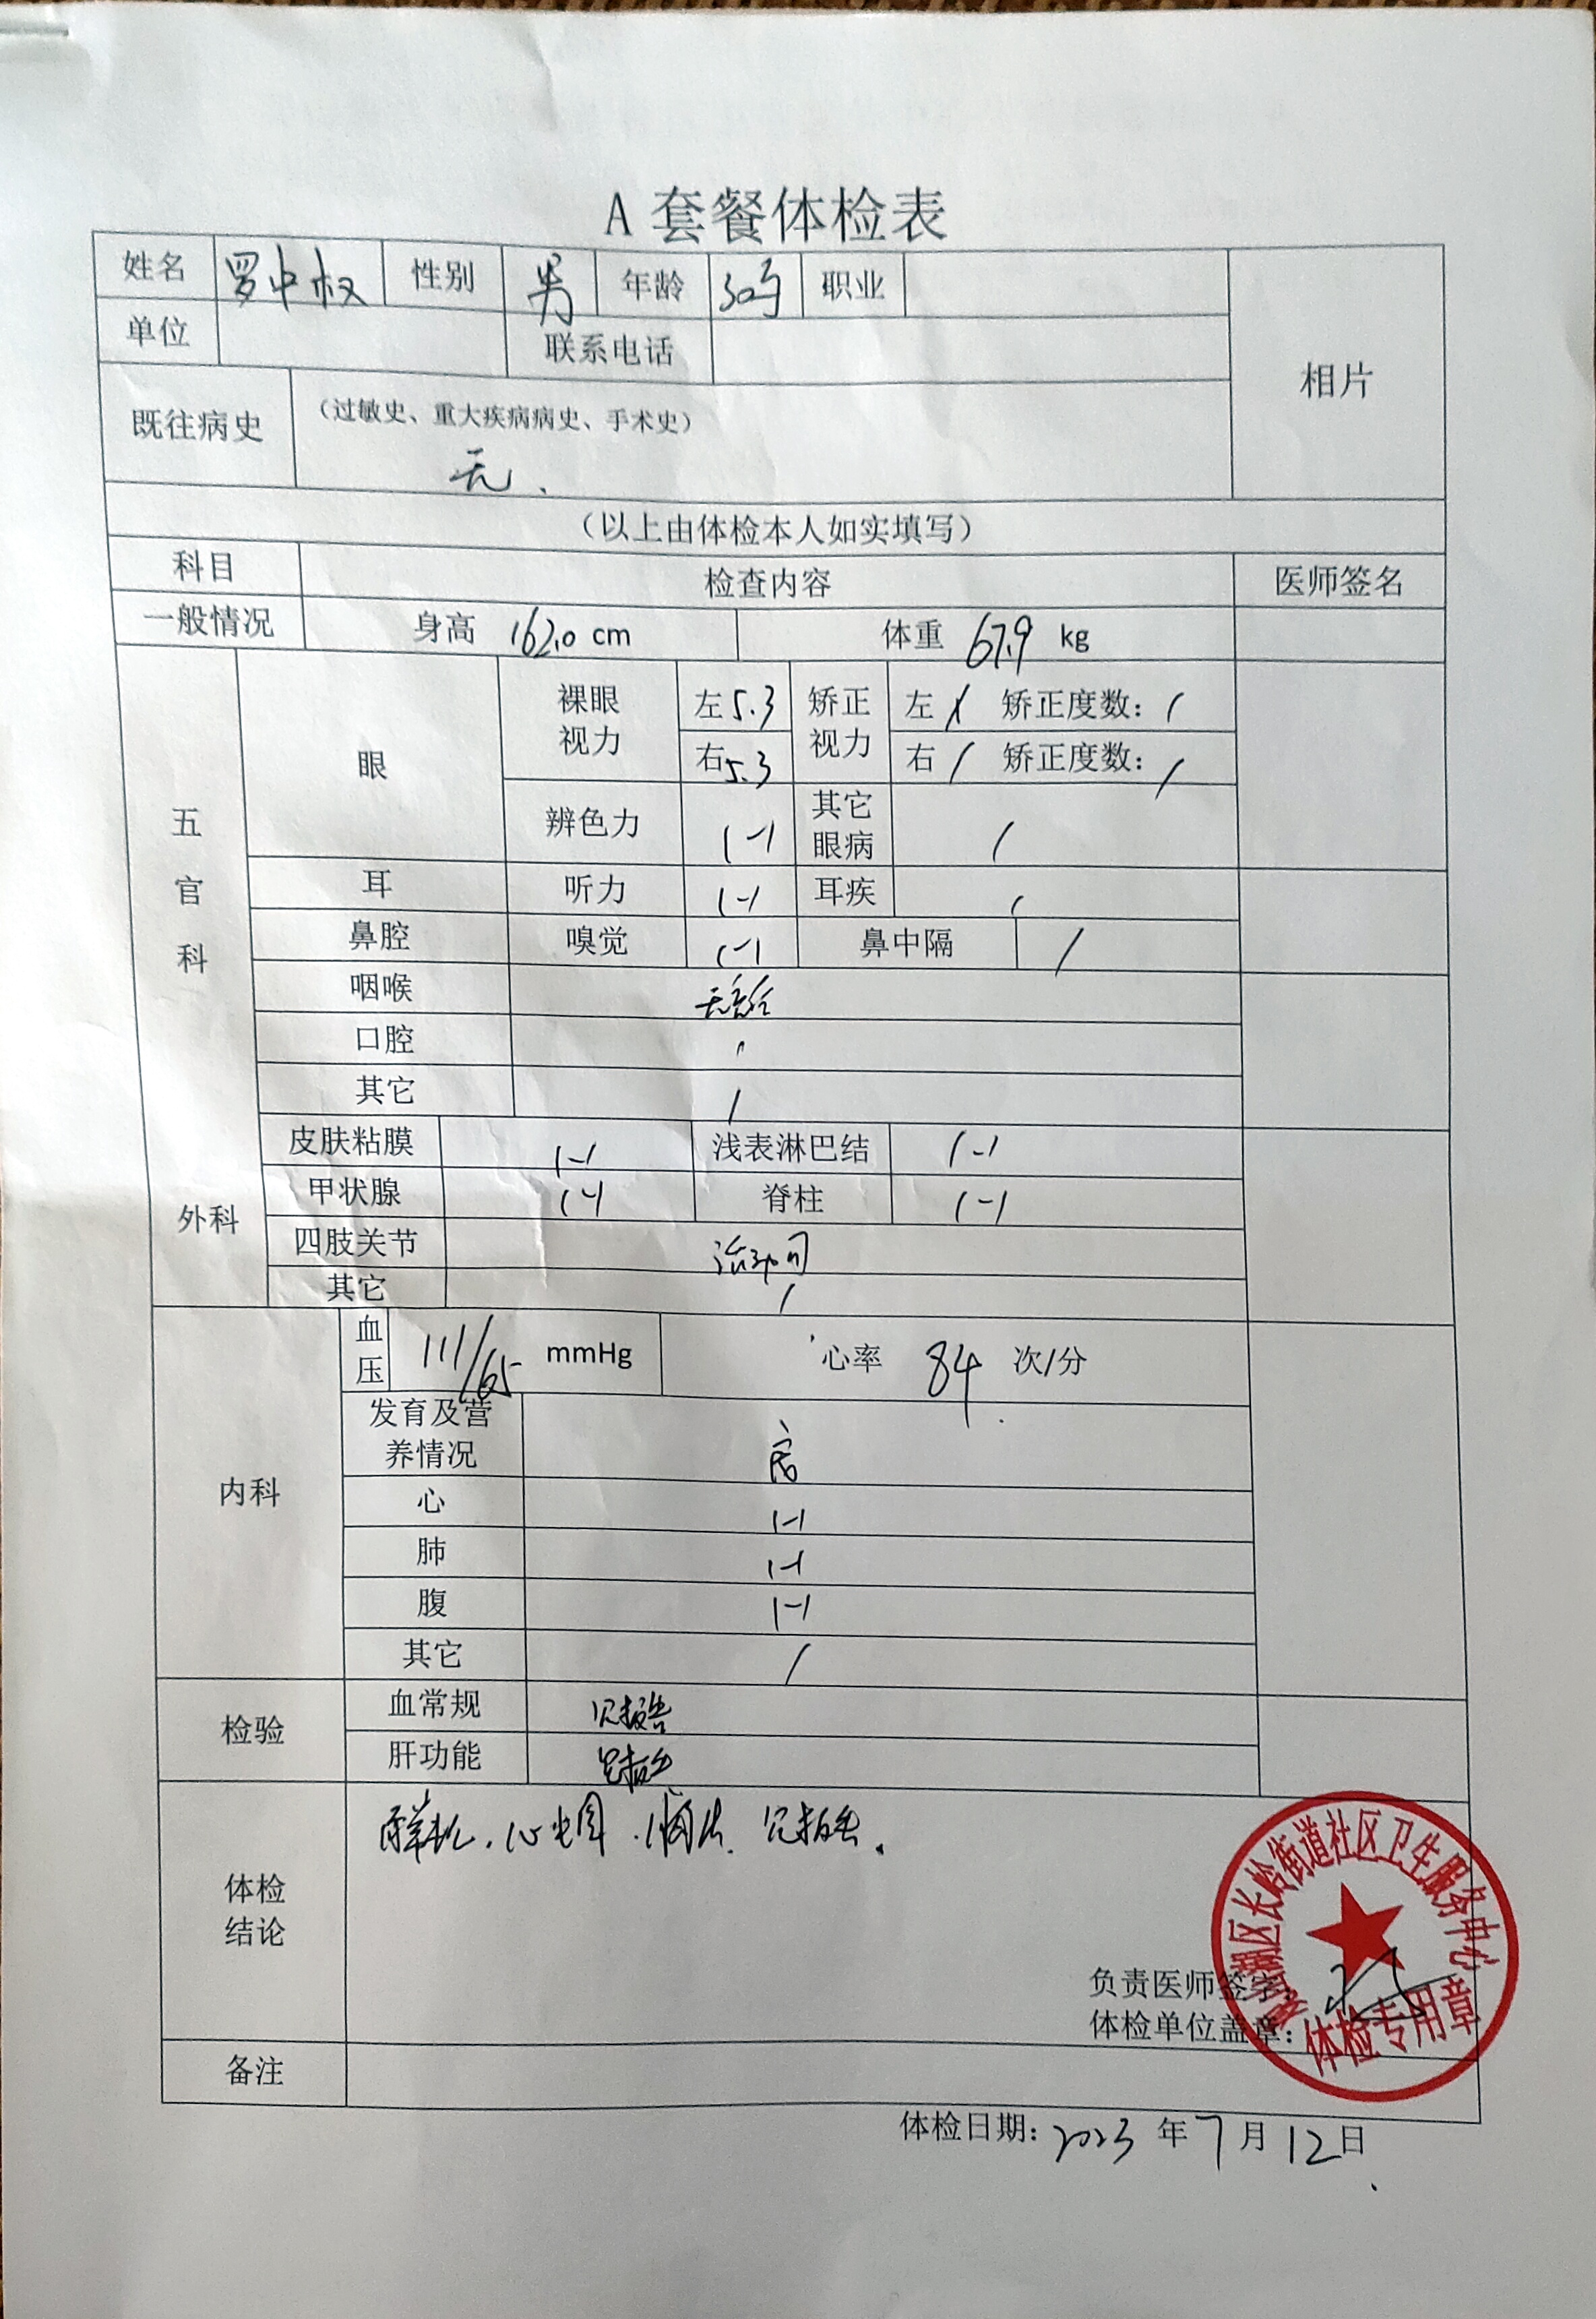 A 套餐体检表
姓名 罗中权 性别 男 年龄 职业
单位 联系电话
相片
既往病史 (过敏史、重大疾病病史、手术史)
无.
(以上由体检本人如实填写)
科目 检查内容 医师签名
一般情况 身高 162.0 cm 体重 67.9 kg
五官科
眼 裸眼视力 左 5.3 矫正视力 左 / 矫正度数: /
右 5.3 右 / 矫正度数: /
辨色力 (-) 其它眼病 /
耳 听力 (-) 耳疾 /
鼻腔 嗅觉 (-) 鼻中隔 /
咽喉
口腔 /
其它 /
外科
皮肤粘膜 (-) 浅表淋巴结 (-)
甲状腺 (-) 脊柱 (-)
四肢关节
其它 /
内科
血压 111/65 mmHg 心率 84 次/分
发育及营养情况
心 (-)
肺 (-)
腹 (-)
其它 /
检验
血常规 见报告
肝功能 见报告
体检结论
心电图. 见报告.
负责医师签字:
体检单位盖章:
区长岭街道社区卫生服务中心
体检专用章
备注
体检日期: 2023 年 7 月 12 日